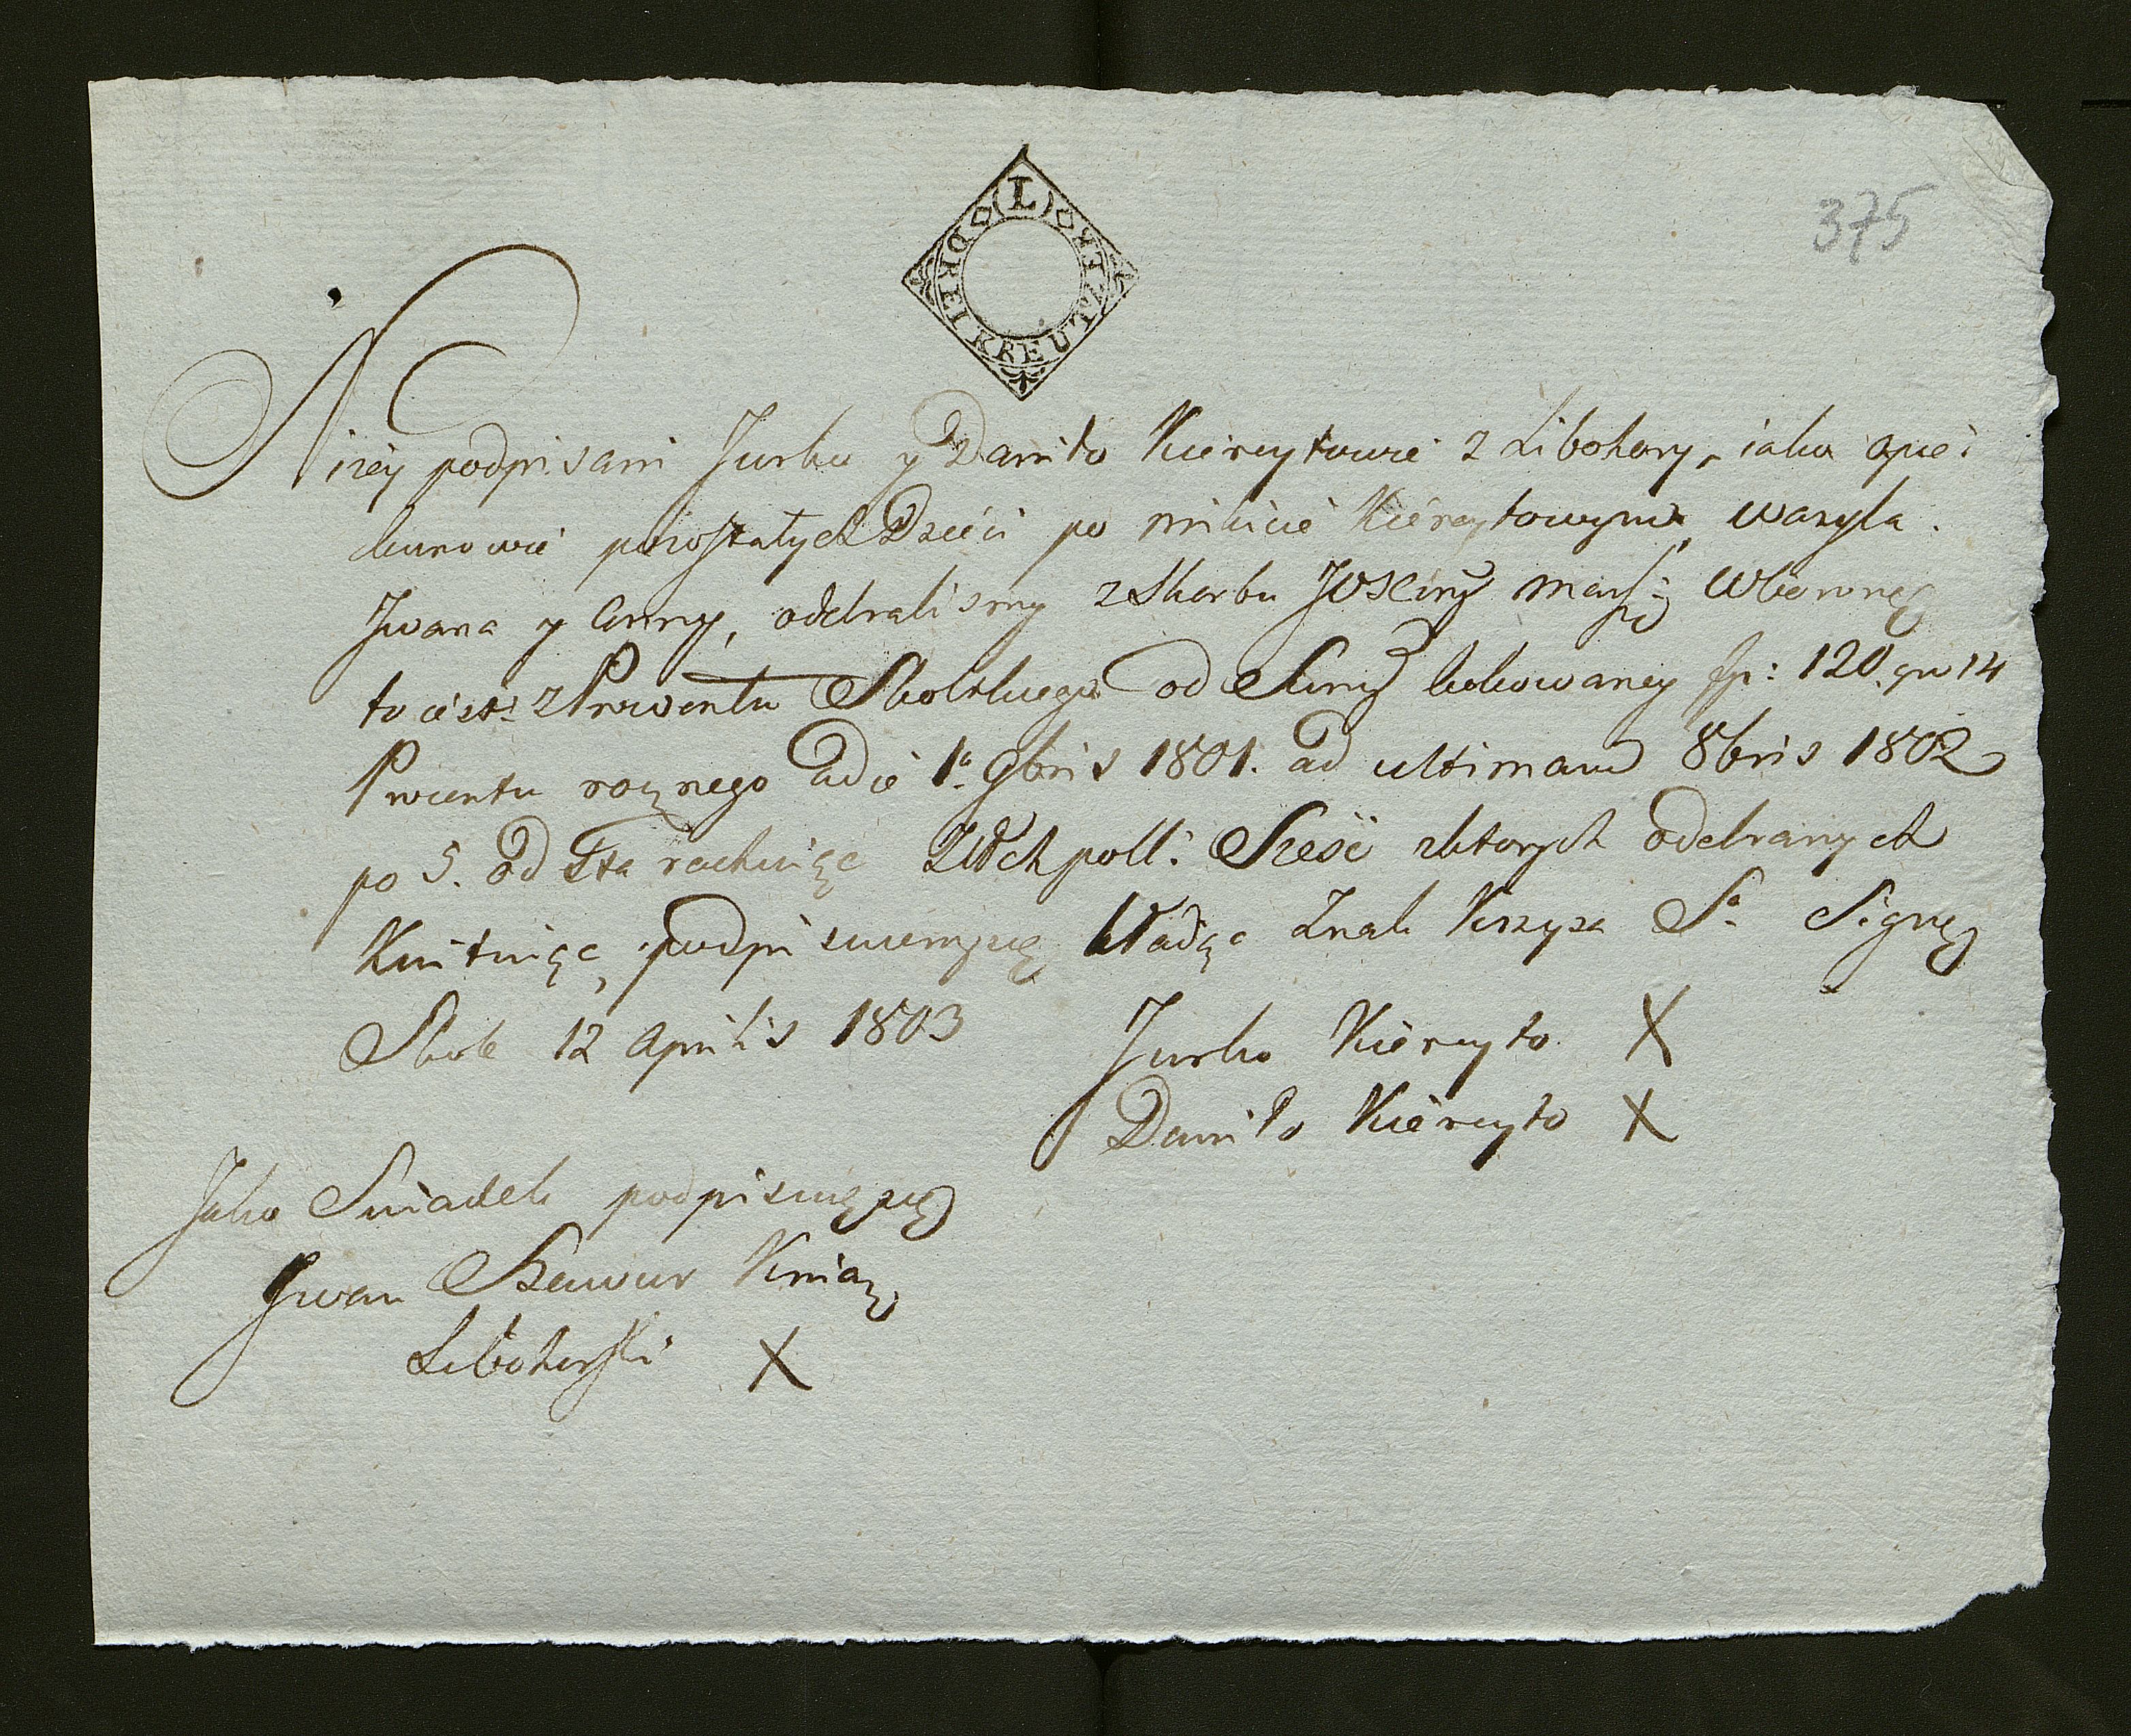 (L)
DREI KREUTZER
375
Niżey podpisani Jurko y Daniło Kiereytowie z Libohory, iako opie:
kunowie pozostałych Dzieci po Mikicie Kiereytowym, Wasyla.
Jwana y Anny, odebralismy z Skarbu JW
to iest: z Prowentu Skolskiego od Summy lokowaney fp: 120. gr 14
Procentu rocznego a die 1a 9bris 1801. ad ultimam 8bris 1802
po 5. od Sta rachuiąc Złłch poll: Sześć ktorych odebranych
Kwituiąc, podpisuiemy się, kładąc Znak Krzyża S.
Skole 12 Aprilis 1803
Jurko Kiereyto X
Daniło Kiereyto X
Jako Swiadek podpisuię się
Jwan Kniaz
Libohorski X